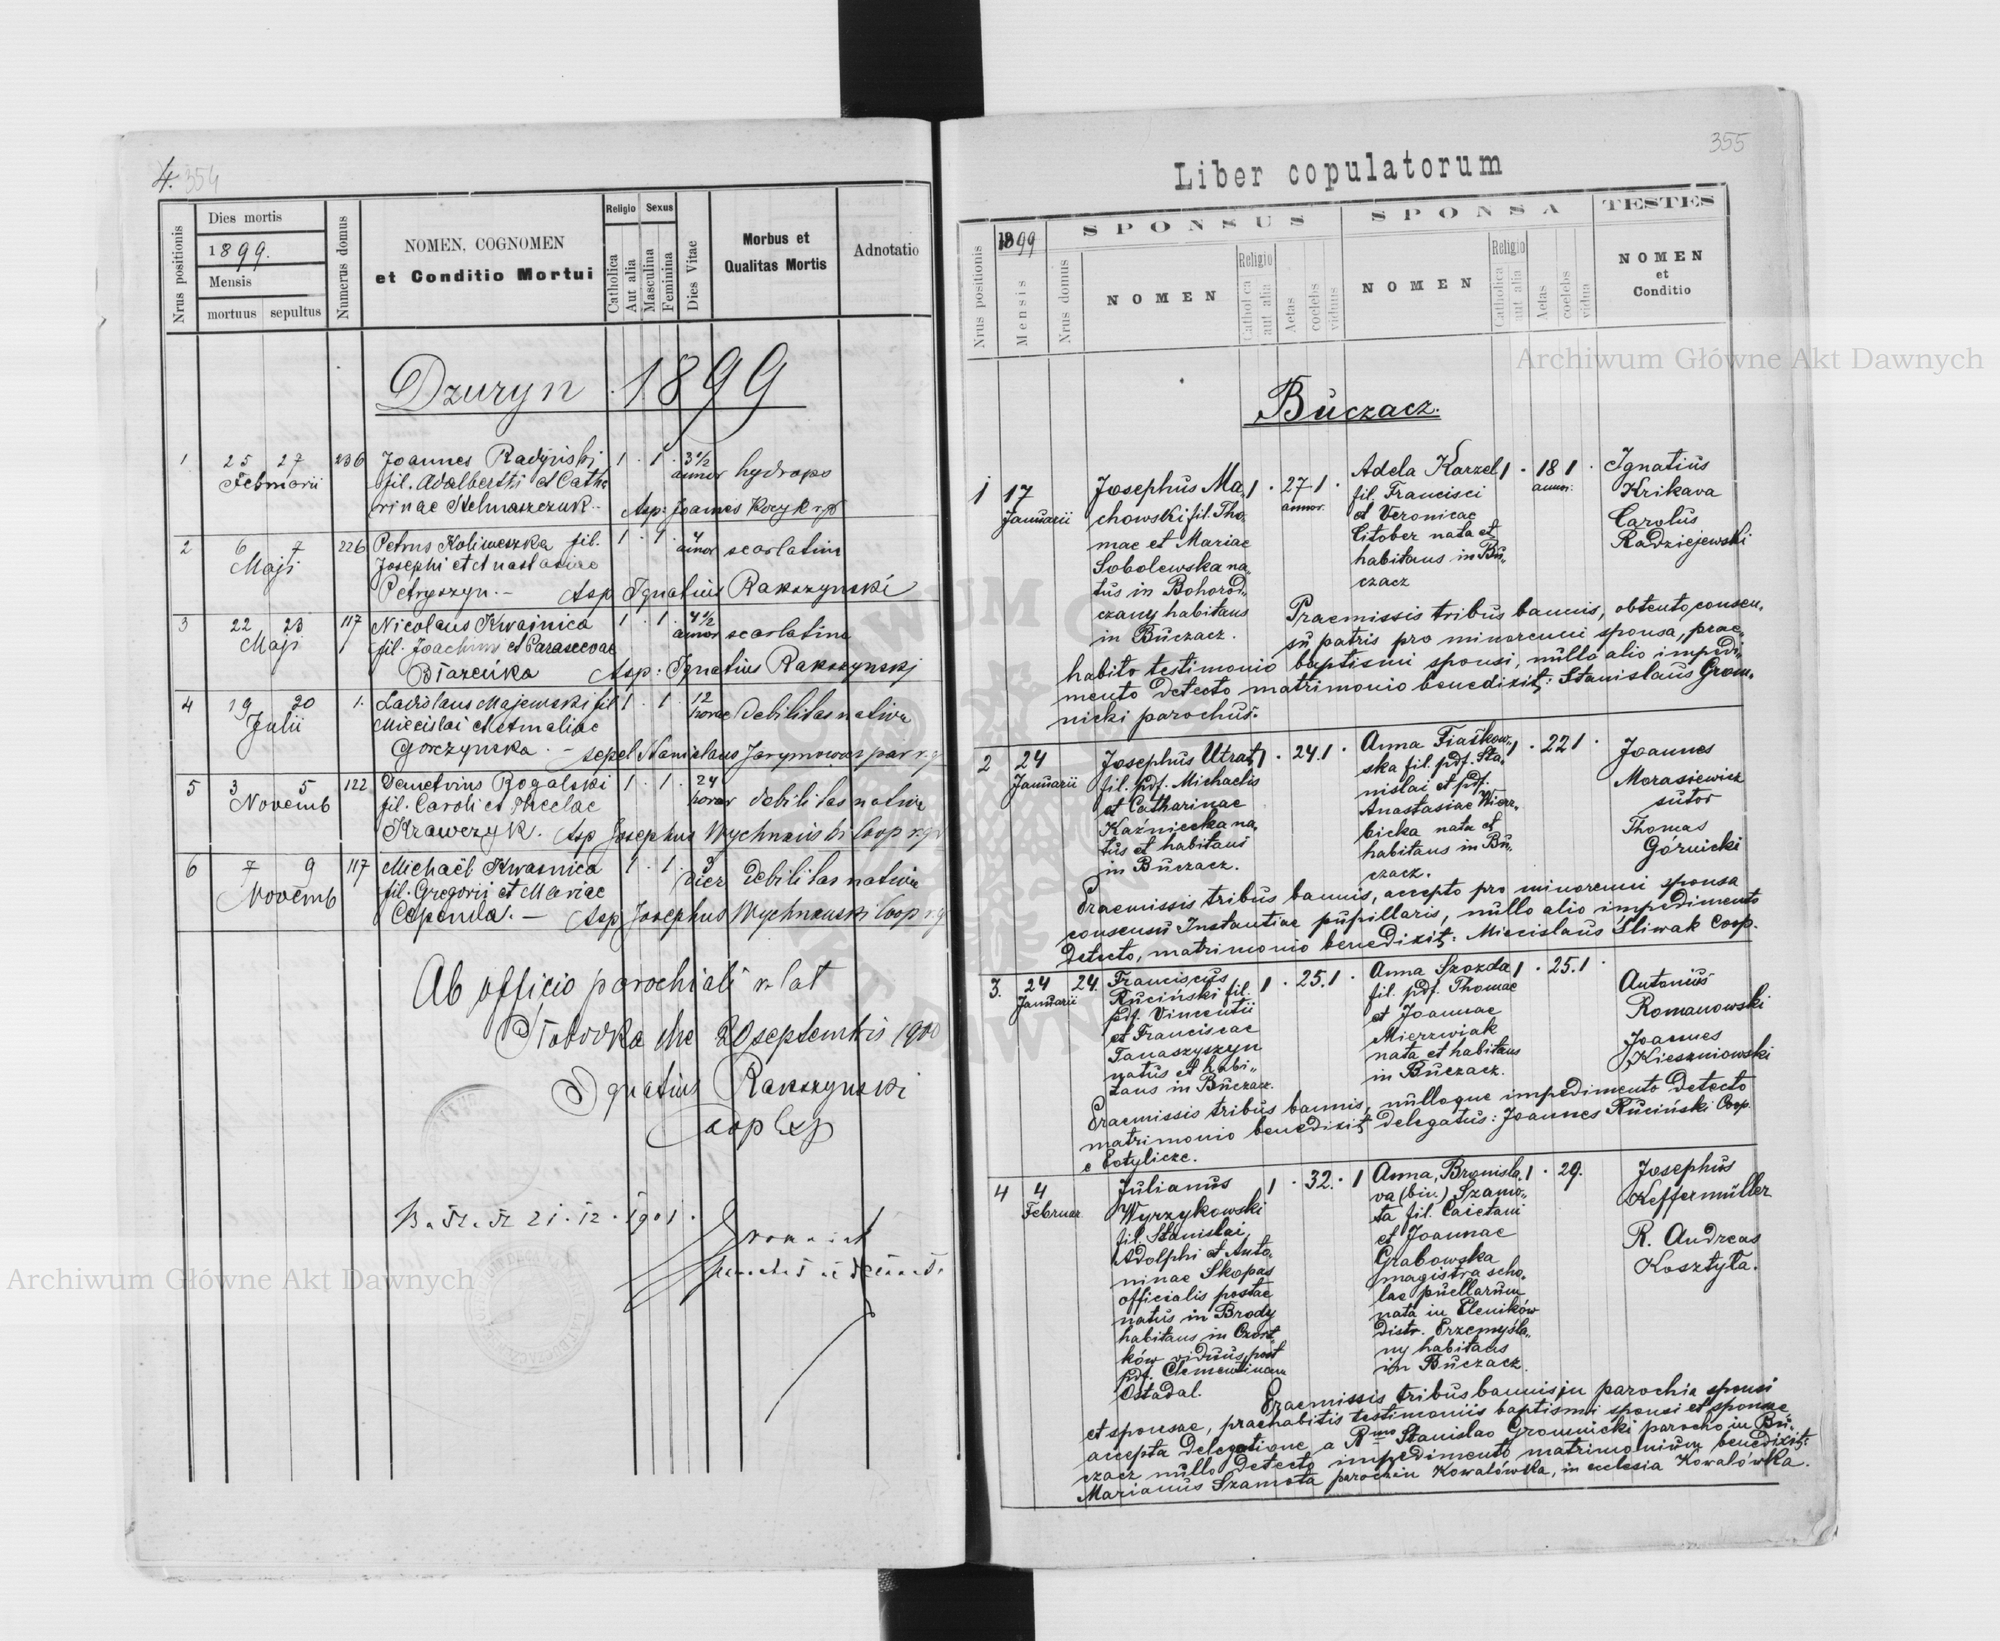 4. 354
Nrus positionis
Dies mortis
1899.
Mensis
mortuus sepultus
Numerus domus
NOMEN, COGNOMEN
et Conditio Mortui
Religio
Catholica
Aut alia
Sexus
Masculina
Feminina
Dies Vitae
Morbus et
Qualitas Mortis
Adnotatio
Dzuryn 1899
1 25 27 236 Joannes Radyński 1 . 1 . 3 1/2 hydrops
Februarii fil. Adalberti et Catha annor
rinae Stelmaszczuk. Asp: Joannes Kocyk
2 6 7 226 Petrus Koliweszka fil. 1 . 1 . 4 scarlatina
Maji Josephi et Anastasiae annor
Petryszyn. — Asp Ignatius Rakszynski
3 22 23 117 Nicolaus Kwaśnica 1 . 1 . 4 1/2 scarlatina
Maji fil. Joachim et Parascevae annor
Asp: Ignatius Rakszynski
4 19 20 1. Ladislaus Majewski fil 1 . 1 . 12 debilitas nativa
Julii Miecislai et Amaliae horae
Gorczyńska. — sepel Stanislaus Jarymowicz par
5 3 5 122 Demetrius Rogalski 1 . 1 . 24 debilitas nativa
Novemb fil. Caroli et Theclae horar
Krawczyk. Asp Josephus Coop
6 7 9 117 Michaël Kwasnica 1 . 1 . debilitas nativa
Novemb fil. Gregorii et Mariae dies
Cependa. — Asp Josephus Coop
Ab officio parochiali r. lat
die 20 septembris 1900
Ignatius Rakszynski
Coop Exp
21.12.1901.
355
Liber copulatorum
Nrus positionis
1899
Mensis
Nrus domus
SPONSUS
NOMEN
Religio
Catholica
aut alia
Aetas
coelebs
viduus
SPONSA
NOMEN
Religio
Catholica
aut alia
Aetas
coelebs
vidua
TESTES
NOMEN
et
Conditio
Buczacz.
1 17 Josephus Ma- 1 . 27 1 . Adela Karzel 1 . 18 1 . Ignatius
Januarii chowski fil. Tho- annor. fil. Francisci annor. Krikava
mae et Mariae et Veronicae Carolus
Sobolewska na- Citober nata et Radziejewski
tus in Bohorod- habitans in Bu-
czany habitans czacz
in Buczacz. Praemissis tribus bannis, obtento consen-
su patris pro minorenni sponsa, prae-
habito testimonio baptismi sponsi, nullo alio impedi-
mento detecto matrimonio benedixit: Stanislaus Grom-
nicki parochus.
2 24 Josephus Utrat 1 . 24.1 . Anna Fiałkow- 1 . 22 1 . Joannes
Januarii fil. pdf. Michaelis ska fil. pdf. Sta- Morasiewicz
et Catharinae nislai et pdf. sutor
Kaźniecka na- Anastasiae Wierz- Thomas
tus et habitans bicka nata et Górnicki
in Buczacz. habitans in Bu-
czacz.
Praemissis tribus bannis, accepto pro minorenni sponsa
consensu Instantiae pupillaris, nullo alio impedimento
detecto, matrimonio benedixit: Miecislaus Śliwak Coop.
3. 24 24. Franciscus 1 . 25.1 . Anna Szozda 1 . 25.1 . Antonius
Januarii Ruciński fil. fil. pdf. Thomae Romanowski
pdf. Vincentii et Joannae Joannes
et Franciscae Mierzwiak Kieszniowski
Tanaszyszyn nata et habitans
natus et habi- in Buczacz.
tans in Buczacz.
Praemissis tribus bannis, nulloque impedimento detecto
matrimonio benedixit delegatus: Joannes Ruciński Coop.
e Potylicze.
4 4 Julianus 1 . 32. . 1 Anna, Bronisla- 1 . 29. Josephus
Februar. Wyrzykowski va (bin.) Szamo- Keffermüller
fil. Stanislai, ta fil. Caietani R. Andreas
Adolphi et Anto- et Joannae Kosztyła.
ninae Skopas Grabowska
officialis postae magistra scho-
natus in Brody lae puellarum
habitans in Czort- nata in Pleników
ków viduus post distr. Przemyśla-
pdf. Clementinam ny habitans
Ostadal. in Buczacz.
Praemissis tribus bannis in parochia sponsi
et sponsae, praehabitis testimoniis baptismi sponsi et sponsae
accepta delegatione a Rmo Stanislao Gromnicki parocho in Bu-
czacz nullo detecto impedimento matrimonium benedixit:
Marianus Szamota parochus Kowalówka, in ecclesia Kowalówka.
Archiwum Główne Akt Dawnych
Archiwum Główne Akt Dawnych